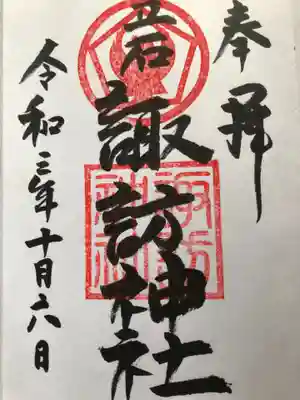 奉拝
立石諏訪神社
令和三年十月六日
諏訪神社